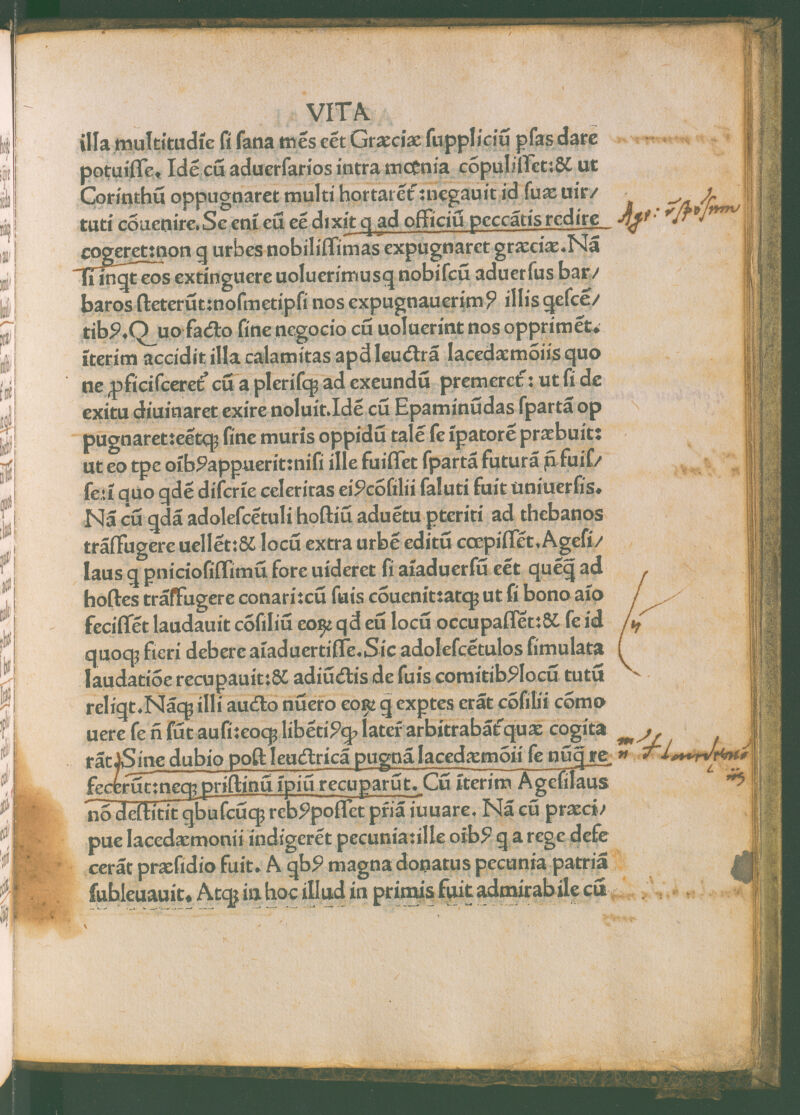 VITA
illa multitudĩe ſi ſana mẽs eẽt Græciæ ſuppliciũ pſas dare
potuiſſe. Idẽ cũ aduerſarios intra mœnia cõpuliſſet:& ut
Corinthũ oppugnaret multi hortarẽt᷑:negauit id ſuæ uir/
tuti cõuenire. Se eni eũ eẽ dixit q ad officiũ peccãtis redire
cogeret:non q urbes nobiliſſimas expugnaret græciæ. Nã
ſi inqt eos extinguere uoluerimus q nobiſcũ aduerſus bar/
baros ſteterũt:noſmetipſi nos expugnauerimꝰ illis qeſcẽ/
tibꝰ. Quo facto ſine negocio cũ uoluerint nos opprimẽt.
ĩterim accidit illa calamitas apd leuctrã lacedæmõiis quo
ne ꝓficiſceret᷑ cũ a pleriſqꝫ ad exeundũ premeret᷑: ut ſi de
exitu diuinaret exire noluit. Idẽ cũ Epaminũdas ſpartã op
pugnaret:eẽtqꝫ ſine muris oppidũ talẽ ſe ĩpatorẽ præbuit:
ut eo tpe oĩbꝰ appuerit:niſi ille fuiſſet ſpartã futurã ñ fuiſ/
ſe:ĩ quo qdẽ diſcrĩe celeritas eiꝰ cõſilii ſaluti fuit uniuerſis.
Nã cũ qdã adoleſcẽtuli hoſtiũ aduẽtu pteriti ad thebanos
trãſſugere uellẽt:& locũ extra urbẽ editũ cœpiſſẽt. Ageſi/
laus q pnicioſiſſimũ fore uideret ſi aĩaduerſũ eẽt quẽq̃ ad
hoſtes trãſſugere conari:cũ ſuis cõuenit:atqꝫ ut ſi bono aĩo
feciſſẽt laudauit cõſiliũ eoꝝ qd eũ locũ occupaſſẽt:& ſe id
quoqꝫ fieri debere aĩaduertiſſe. Sic adoleſcẽtulos ſimulata
laudatiõe recupauit:& adiũctis de ſuis comitibꝰ locũ tutũ
reliqt. Nãqꝫ illi aucto nũero eoꝝ q exptes erãt cõſilii cõmo
uere ſe ñ ſũt auſi:eoqꝫ libẽtiꝰ ꝙ later̃ arbitrabãt᷑ quæ cogita
rãt. Sine dubio poſt leuctricã pugnã lacedæmõii ſe nũq̃ re
fecerũt:neqꝫ priſtinũ ĩpiũ recuparũt. Cũ ĩterim Ageſilaus
nõ deſtitit qbuſcũqꝫ rebꝰ poſſet pr̃iã iuuare. Nã cũ præci/
pue lacedæmonii indigerẽt pecunia:ille oĩbꝰ q a rege defe
cerãt præſidio fuit. A qbꝰ magna donatus pecunia patriã
ſubleuauit. Atqꝫ in hoc illud in primis fuit admirabile cũ